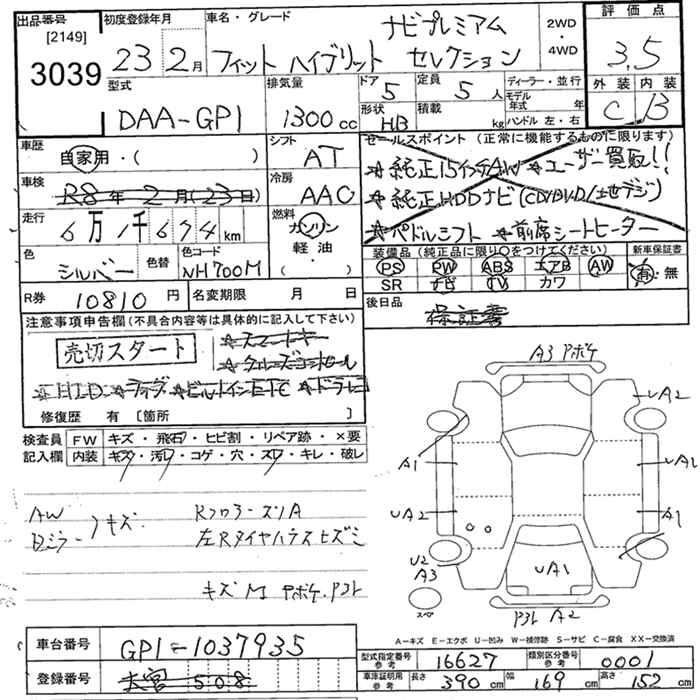 出品番号 初度登録年月 車名・グレード 評価点
[2149]
3039
23 2月 フィット ハイブリット ナビプレミアム セレクション 2WD・4WD 3.5
型式 排気量 ドア 定員 ディーラー・並行 外装 内装
DAA-GP1 1300cc 5 5人 モデル年式 年 C B
形状 積載 ハンドル 左・右
HB kg
車歴 シフト セールスポイント (正常に機能するものに限ります)
自家用・( ) AT ☆純正15インチAW ☆ユーザー買取!!
車検 冷房 ☆純正HDDナビ(CD/DVD/地デジ)
R8年2月(23日) AAC
走行 燃料 ☆パドルシフト ☆前席シートヒーター
6万1千674km ガソリン・軽油・
装備品 (純正品に限り○をつけてください) 新車保証書
色 色替 色コード PS PW ABS エアB AW 有・無
シルバー NH700M SR ナビ TV カワ
R券 10810円 名変期限 月 日 後日品
保証書
注意事項申告欄(不具合内容等は具体的に記入して下さい)
売切スタート ☆スマートキー
☆クルーズコントロール
☆HID ☆ビルトインETC ☆ドラレコ
修復歴 有 [箇所 ]
検査員 FW キズ・飛石・ヒビ割・リペア跡・×要
記入欄 内装 キズ・汚レ・コゲ・穴・スレ・キレ・破レ
A3 Pボケ
UA2
A1 UA1
UA2 A1
U2
A3
UA1
スペア
P31 A2
AW
Dミラー キズ
RフロアーズリA
左Rタイヤハウスヒズミ
キズM Pボケ.P31
A−キズ E−エクボ U−凹み W−補修跡 S−サビ C−腐食 XX−交換済
車台番号 GP1-1037935
型式指定番号 参考 16627 類別区分番号 参考 0001
登録番号 大宮 508
車庫証明用 参考 長さ 390cm 幅 169cm 高さ 152cm